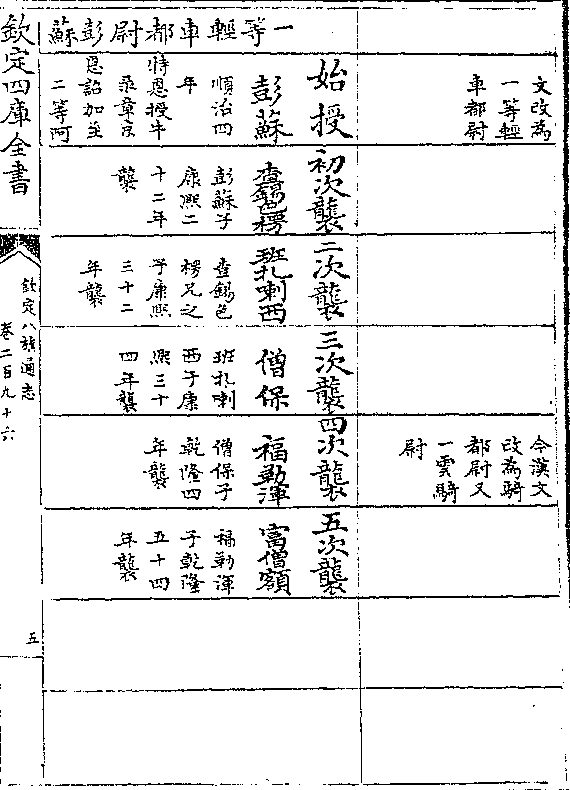 文改為
一等輕
車都尉
今漢文
改為騎
都尉又
一雲騎
尉
一等輕車都尉彭蘇
始授
彭蘇
順治四
年
特恩授牛
录章京
恩詔加至
二等阿
初次襲
查錫色楞
彭蘇子
康熙二
十二年
襲
二次襲
班扎喇西
查錫色
楞兄之
子康熙
三十二
年襲
三次襲
僧保
班扎喇
西子康
熙三十
四年襲
四次襲
福勒渾
僧保子
乾隆四
年襲
五次襲
富僧額
福勒渾
子乾隆
五十四
年襲
欽定四庫全書
欽定八旗通志
卷二百九十六
五